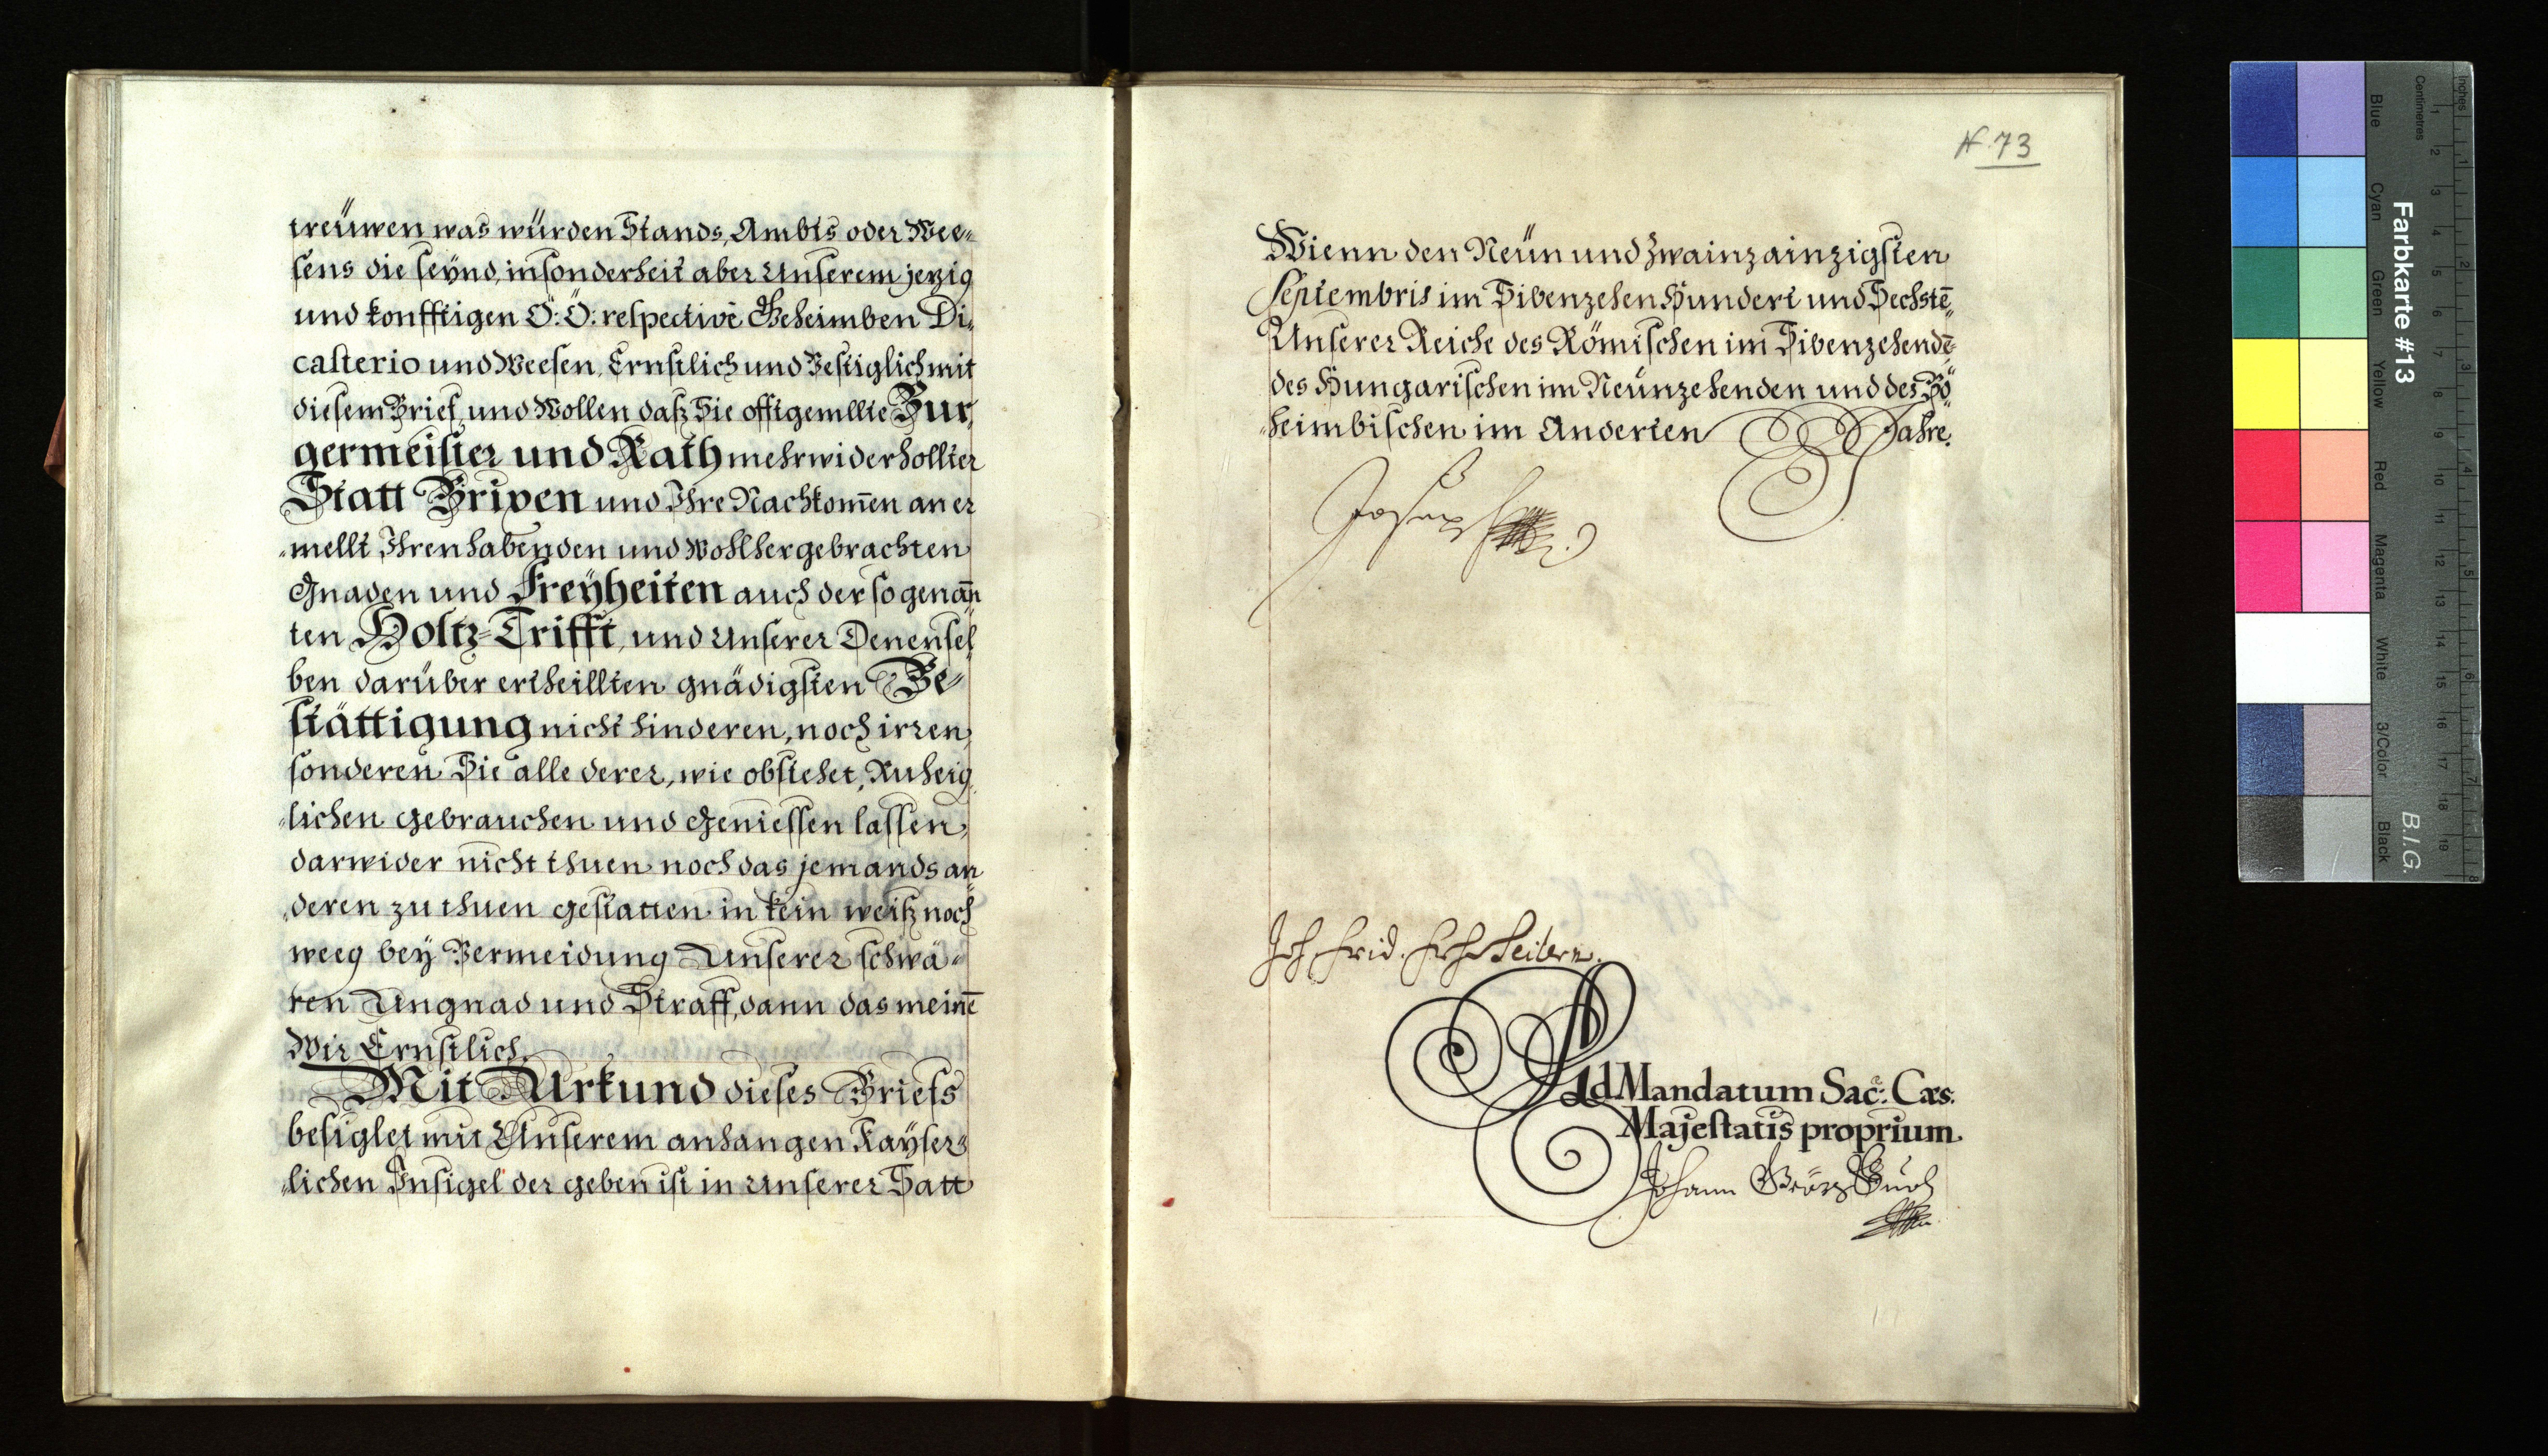 treüwen was würden Stands, Ambts oder Wee=
sens die seÿnd, insonderheit aber Unserem jezig
und konfftigen Ö: Ö: respectivè Geheimben Di,
casterio und Weesen, Ernstlich und Vestiglich mit
diesem Brief, und Wollen daß Sie offtgemllte Bur,
germeister und Rath mehrwiderhollter
Statt Brixen und Ihre Nachkom̄en an er
=mellt Ihren habenden und Wohlhergebrachten
Gnaden und Freÿheiten auch der so genan̄
ten Holtz=Trifft, und Unserer Denensel
ben darüber ertheillten gnädigsten Be=
stättigung nicht hinderen, noch irren,
sonderen Sie alle derer, wie obstehet, Ruheig,
=lichen gebrauchen und geniessen lassen,
darwider nicht thuen noch das jemands an
,deren zu thuen gestatten in kein weiß noch
weeg beÿ Vermeidung Unserer schwä=
ren Ungnad und Straff, dann das meinē
Wir Ernstlich.
Mit Urkund dieses Briefs
besiglet mit Unserem anhangen Kaÿser=
=lichen Insigel der geben ist in Unserer Satt
N. 73
Wienn den Neün und Zwainzainzigsten
Septembris im Sibenzehen Hundert und Sechstē,
Unserer Reiche des Römischen im Sibenzehendē
des Hungarischen im Neünzehenden und des Bö
=heimbischen im Anderten Jahre.
Joseph
Joh. Frid. Frh. v. Seilern.
Ad Mandatum Sac: Cæs:
Majestatis proprium.
Johann Georg Buol
Farbkarte #13
B.I.G.
Inches
Centimetres
1 2 3 4 5 6 7 8 9 10 11 12 13 14 15 16 17 18 19
1 2 3 4 5 6 7 8
Blue
Cyan
Green
Yellow
Red
Magenta
White
3/Color
Black